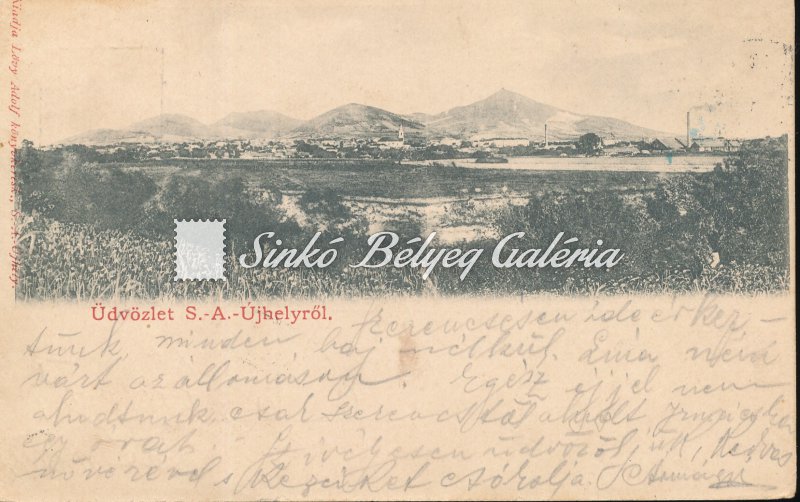 Kiadja Lövy Adolf könyvkeresk., S.-A.-Ujhely.
Sinkó Bélyeg Galéria
Üdvözlet S.-A.-Újhelyről.
Szerencsésen ide érkez-
tünk minden baj nélkül. Lina
várt az állomáson. Egész éjjel nem
aludtunk csak
egy órát. Szivélyesen üdvözöl
nővéred s kezeiket csókolja